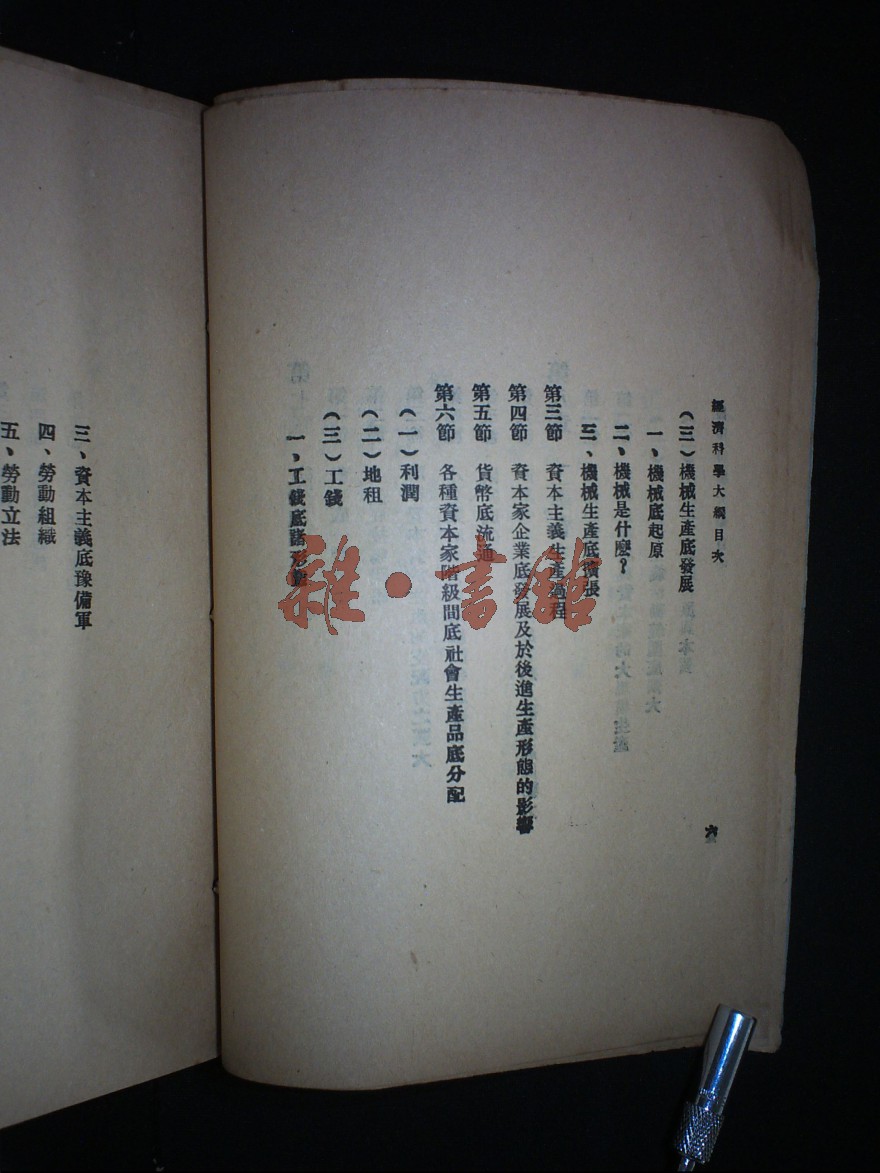 經濟科學大綱目次
六
(三)機械生產底發展
一、機械底起原
二、機械是什麼?
三、機械生產底擴張
第三節 資本主義生產過程
第四節 資本家企業底發展及於後進生產形態的影響
第五節 貨幣底流通
第六節 各種資本家階級間底社會生產品底分配
(一)利潤
(二)地租
(三)工錢
一、工錢底諸形態
三、資本主義底豫備軍
四、勞動組織
五、勞動立法
雜·書館